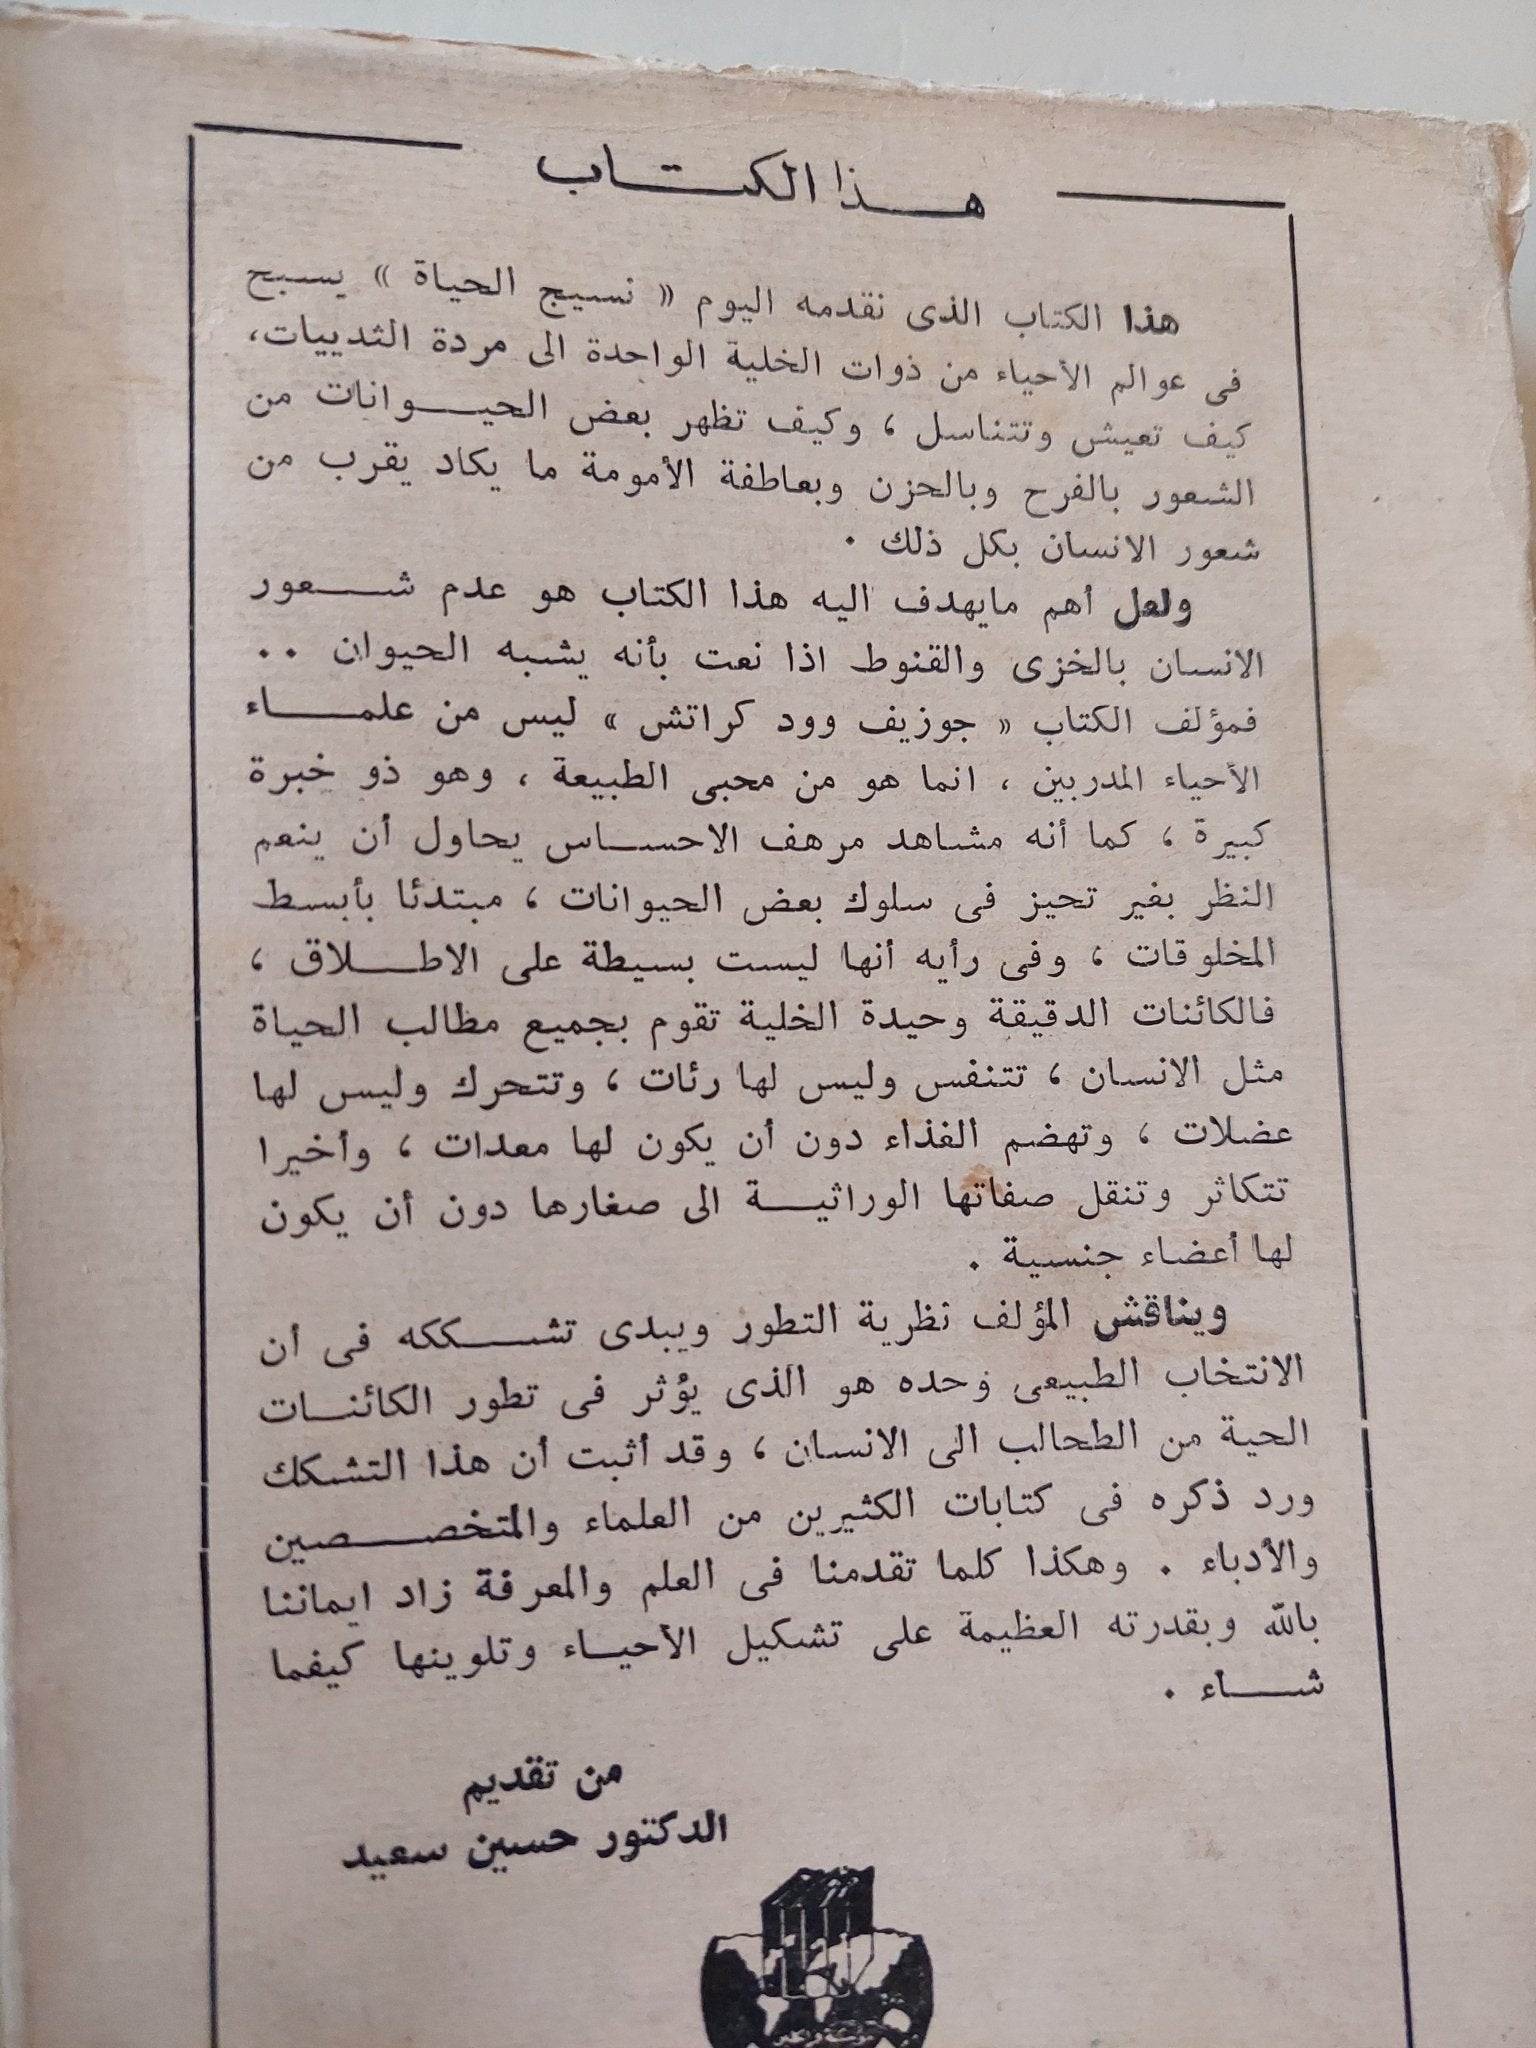 هذا الكتاب
هذا الكتاب الذى نقدمه اليوم « نسيج الحياة » يسبح
فى عوالم الأحياء من ذوات الخلية الواحدة الى مردة الثدييات،
كيف تعيش وتتناسل ، وكيف تظهر بعض الحيوانات من
الشعور بالفرح وبالحزن وبعاطفة الأمومة ما يكاد يقرب من
شعور الانسان بكل ذلك .
ولعل أهم مايهدف اليه هذا الكتاب هو عدم شعور
الانسان بالخزى والقنوط اذا نعت بأنه يشبه الحيوان ..
فمؤلف الكتاب « جوزيف وود كراتش » ليس من علماء
الأحياء المدربين ، انما هو من محبى الطبيعة ، وهو ذو خبرة
كبيرة ، كما أنه مشاهد مرهف الاحساس يحاول أن ينعم
النظر بغير تحيز فى سلوك بعض الحيوانات ، مبتدئا بأبسط
المخلوقات ، وفى رأيه أنها ليست بسيطة على الاطلاق ،
فالكائنات الدقيقة وحيدة الخلية تقوم بجميع مطالب الحياة
مثل الانسان ، تتنفس وليس لها رئات ، وتتحرك وليس لها
عضلات ، وتهضم الغذاء دون أن يكون لها معدات ، وأخيرا
تتكاثر وتنقل صفاتها الوراثية الى صغارها دون أن يكون
لها أعضاء جنسية .
ويناقش المؤلف نظرية التطور ويبدى تشككه فى أن
الانتخاب الطبيعى وحده هو الذى يؤثر فى تطور الكائنات
الحية من الطحالب الى الانسان ، وقد أثبت أن هذا التشكك
ورد ذكره فى كتابات الكثيرين من العلماء والمتخصصين
والأدباء . وهكذا كلما تقدمنا فى العلم والمعرفة زاد ايماننا
بالله وبقدرته العظيمة على تشكيل الأحياء وتلوينها كيفما
شاء .
من تقديم
الدكتور حسين سعيد